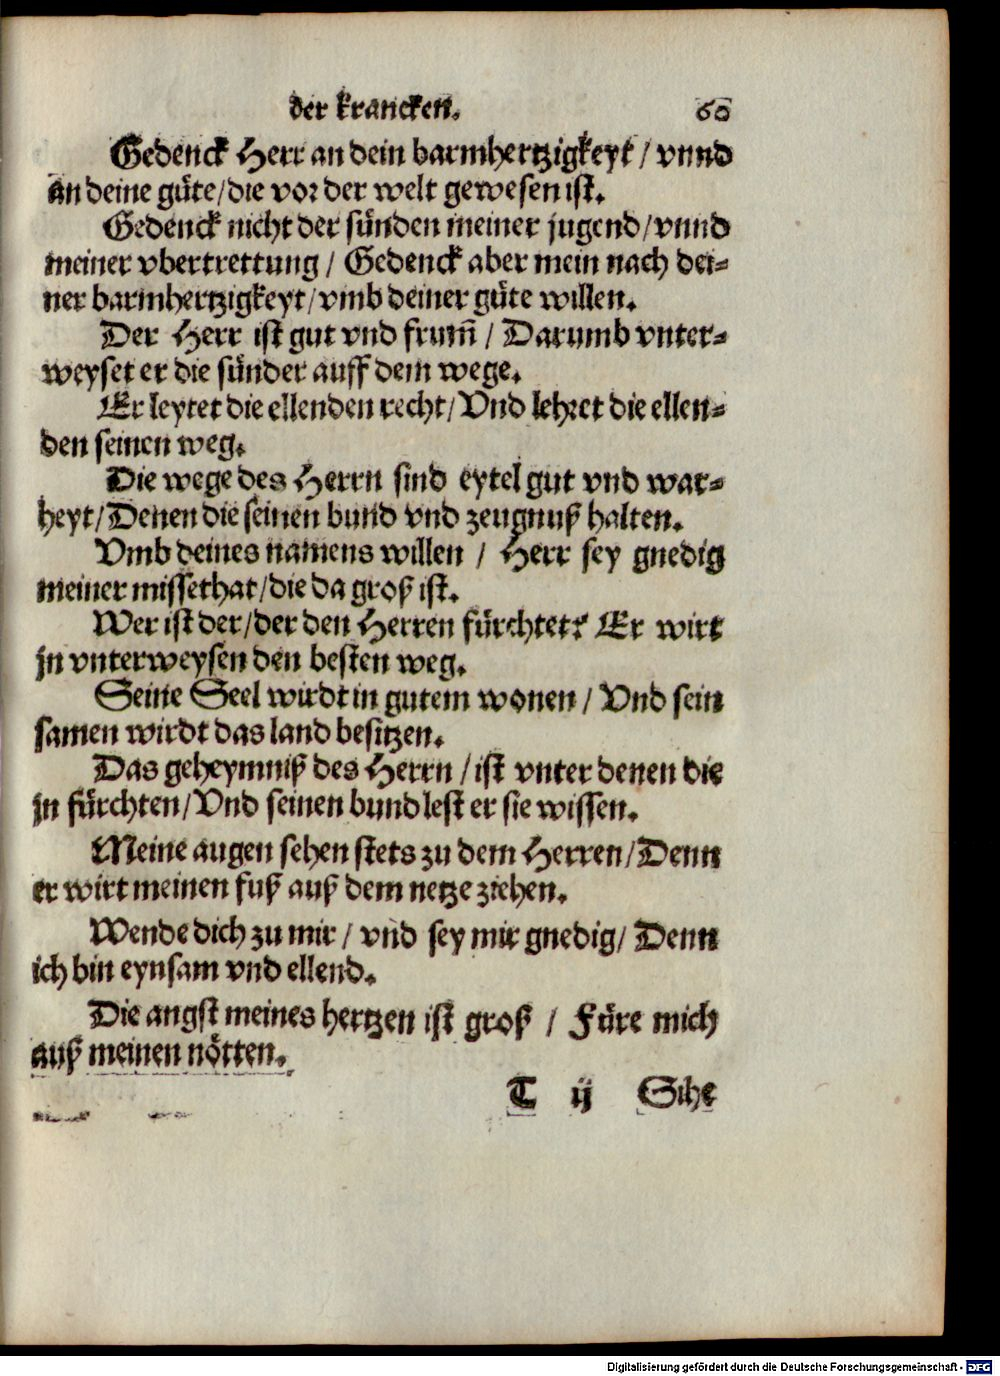 der krancken. 60
Gedenck Herr an dein barmhertzigkeyt / vnnd
an deine güte/die vor der welt gewesen ist.
Gedenck nicht der sünden meiner jugend/vnnd
meiner vbertrettung / Gedenck aber mein nach dei-
ner barmhertzigkeyt/vmb deiner güte willen.
Der Herr ist gut vnd frum̃ / Darumb vnter-
weyset er die sünder auff dem wege.
Er leytet die ellenden recht/Vnd lehret die ellen-
den seinen weg.
Die wege des Herrn sind eytel gut vnd war-
heyt/Denen die seinen bund vnd zeugnuß halten.
Vmb deines namens willen / Herr sey gnedig
meiner missethat/die da groß ist.
Wer ist der/der den Herren fürchtet? Er wirt
jn vnterweysen den besten weg.
Seine Seel wirdt in gutem wonen / Vnd sein
samen wirdt das land besitzen.
Das geheymniß des Herrn /ist vnter denen die
jn fürchten/Vnd seinen bund lest er sie wissen.
Meine augen sehen stets zu dem Herren/Denn
er wirt meinen fuß auß dem netze ziehen.
Wende dich zu mir / vnd sey mir gnedig/ Denn
ich bin eynsam vnd ellend.
Die angst meines hertzen ist groß / Füre mich
auß meinen nötten.
T ij Sihe
Digitalisierung gefördert durch die Deutsche Forschungsgemeinschaft - DFG